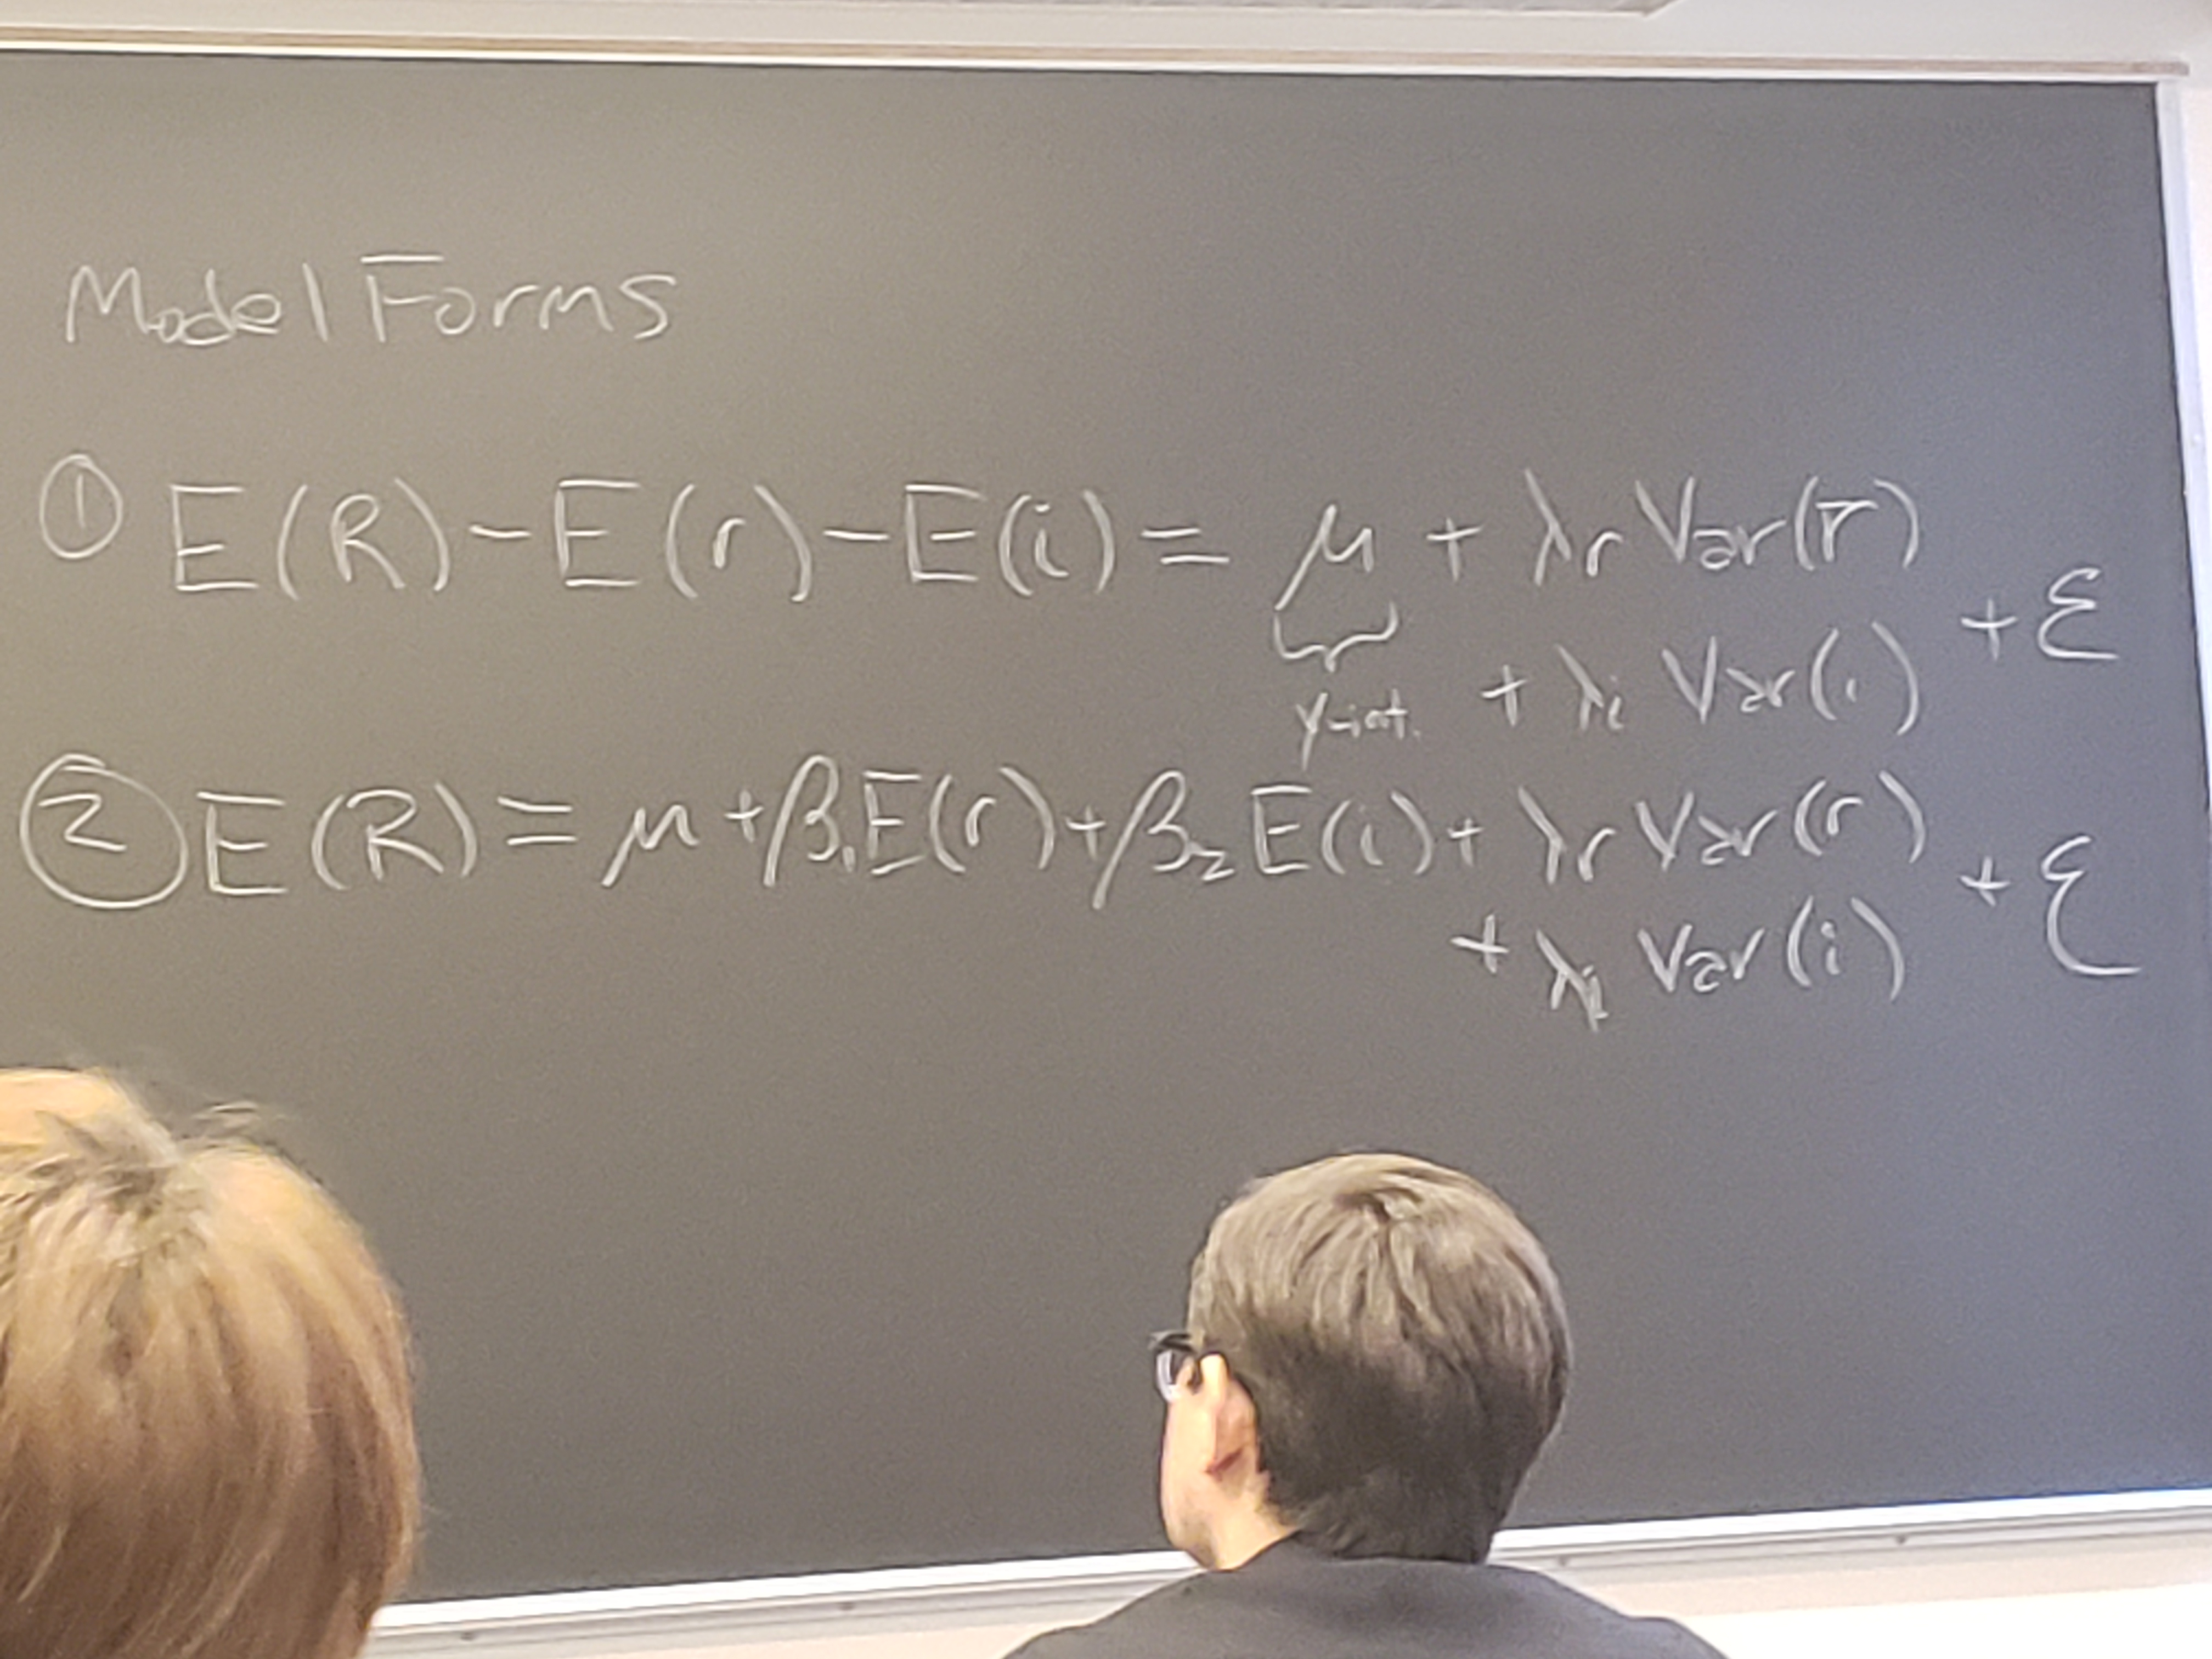 Model Forms
① E(R) - E(r) - E(i) = μ + λr Var(r)
y-int. + λi Var(i) + ε
② E(R) = μ + β₁E(r) + β₂E(i) + λr Var(r)
+ λi Var(i) + ε